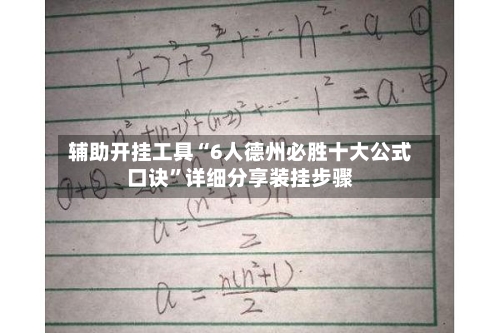 1²+2²+3²+……n²=a.①
n²+(n-1)²+(n-2)²+……1²=a.②
辅助开挂工具“6人德州必胜十大公式
口诀”详细分享装挂步骤
①+②
a=(n²+1)n/2
a=n(n²+1)/2